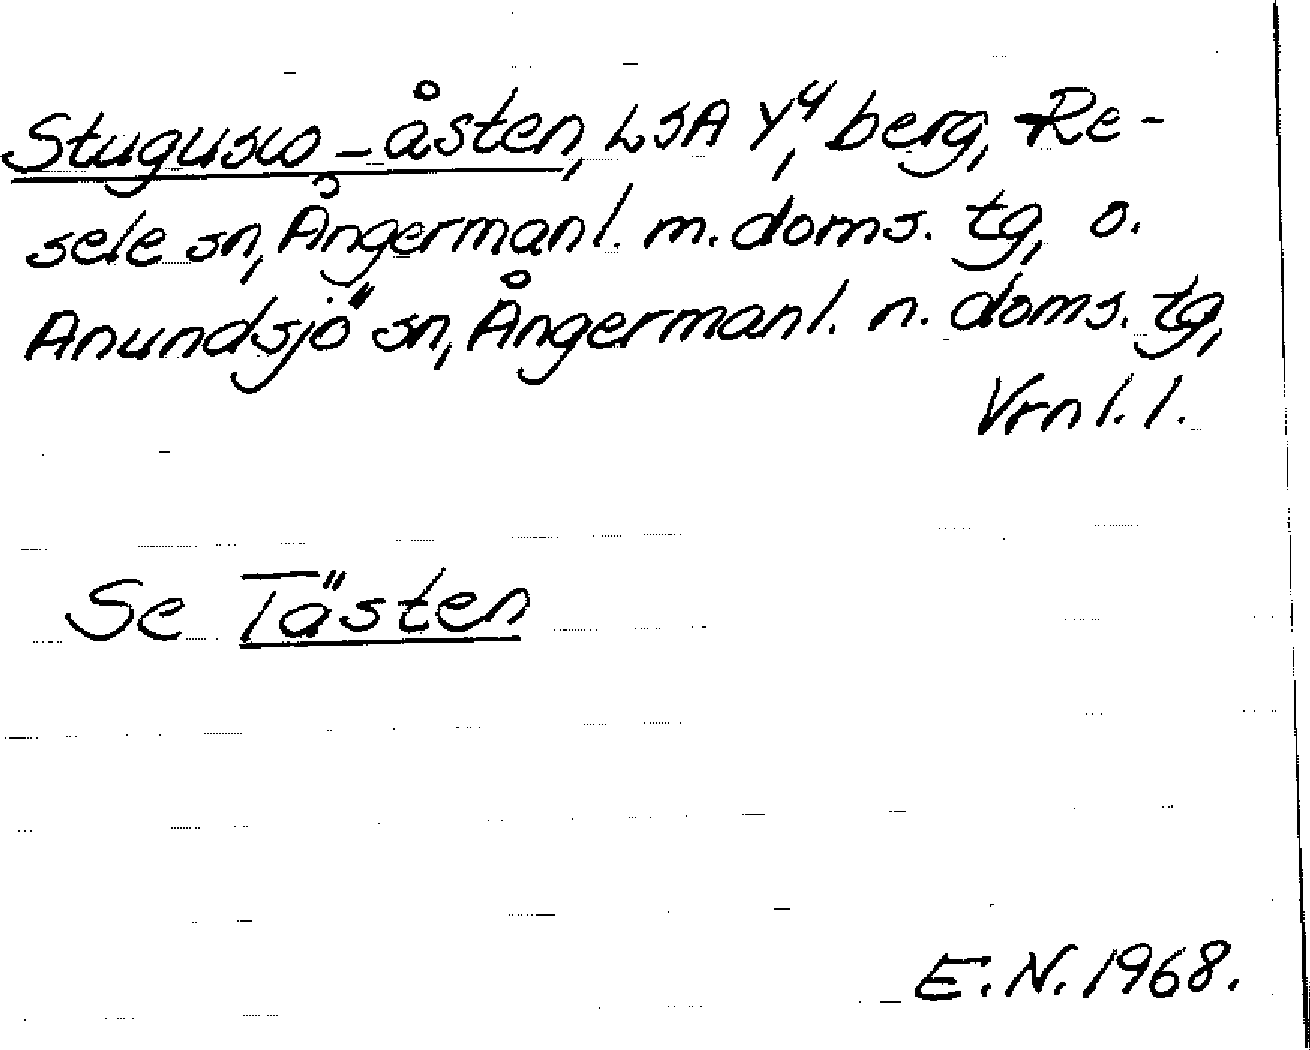 Stugusw_åsten, LSA Y4, berg, Re-
sele sn, Ångermanl. m. doms. tg, o.
Anundsjö sn, Ångermanl. n. doms. tg,
Vrnl. l.
Se Tästen
E.N. 1968.